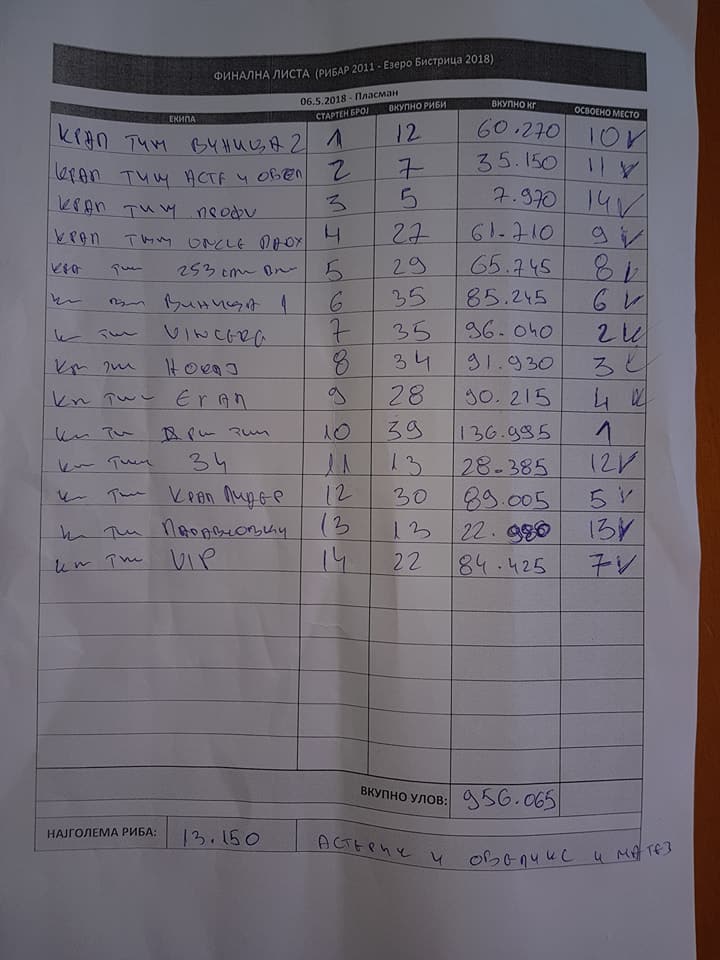 ФИНАЛНА ЛИСТА (РИБАР 2011 - Езеро Бистрица 2018)
06.5.2018 - Пласман
ЕКИПА СТАРТЕН БРОЈ ВКУПНО РИБИ ВКУПНО КГ ОСВОЕНО МЕСТО
КРАП ТИМ ВИНИЦА 2 1 12 60.270 10
КРАП ТИМ АСТЕ И ОБЕЛ 2 7 35.150 11
КРАП ТИМ ПРОФИ 3 5 7.970 14
КРАП ТИМ UNCLE 4 27 61.710 9
253 5 29 65.745 8
ВИНИЦА 1 6 35 85.245 6
тим VINCERE 7 35 96.040 2
8 34 91.930 3
тим ЕГАП 9 28 90.215 4
10 39 136.995 1
тим 34 11 13 28.385 12
тим КРАП ЛИДЕР 12 30 89.005 5
тим 13 13 22.980 13
тим VIP 14 22 84.425 7
ВКУПНО УЛОВ: 956.065
НАЈГОЛЕМА РИБА: 13.150 АСТЕРИКС И ОБЕЛИКС И